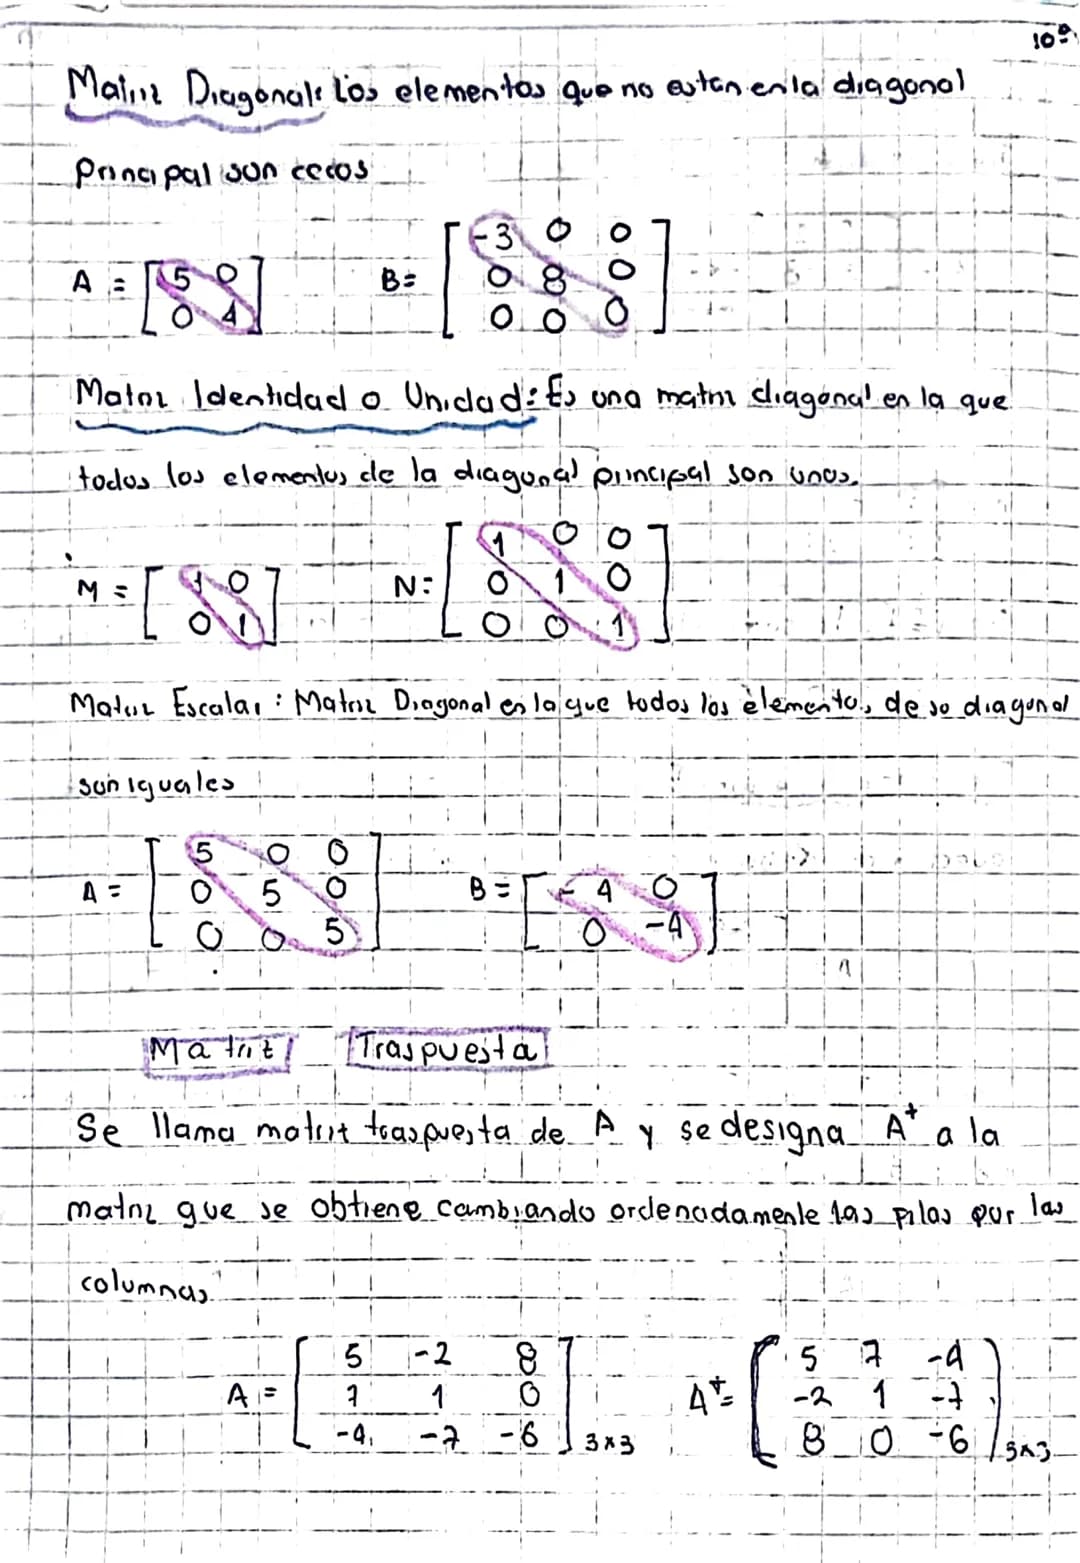 10º
Matriz Diagonal: Los elementos que no estan en la diagonal
Principal son ceros
A = [ 5 0
0 4 ]
B= [ -3 0 0
0 8 0
0 0 0 ]
Matriz Identidad o Unidad: Es una matriz diagonal en la que
todos los elementos de la diagonal principal son unos.
M = [ 1 0
0 1 ]
N= [ 1 0 0
0 1 0
0 0 1 ]
Matriz Escalar : Matriz Diagonal en la que todos los elementos de su diagonal
son iguales
A = [ 5 0 0
0 5 0
0 0 5 ]
B = [ -4 0
0 -4 ]
Matriz Traspuesta
Se llama matriz traspuesta de A y se designa A^t a la
matriz que se obtiene cambiando ordenadamente las filas por las
columnas
A = [ 5 -2 8
7 1 0
-4 -7 -6 ] 3x3
A^t= [ 5 7 -4
-2 1 -7
8 0 -6 ] 3x3